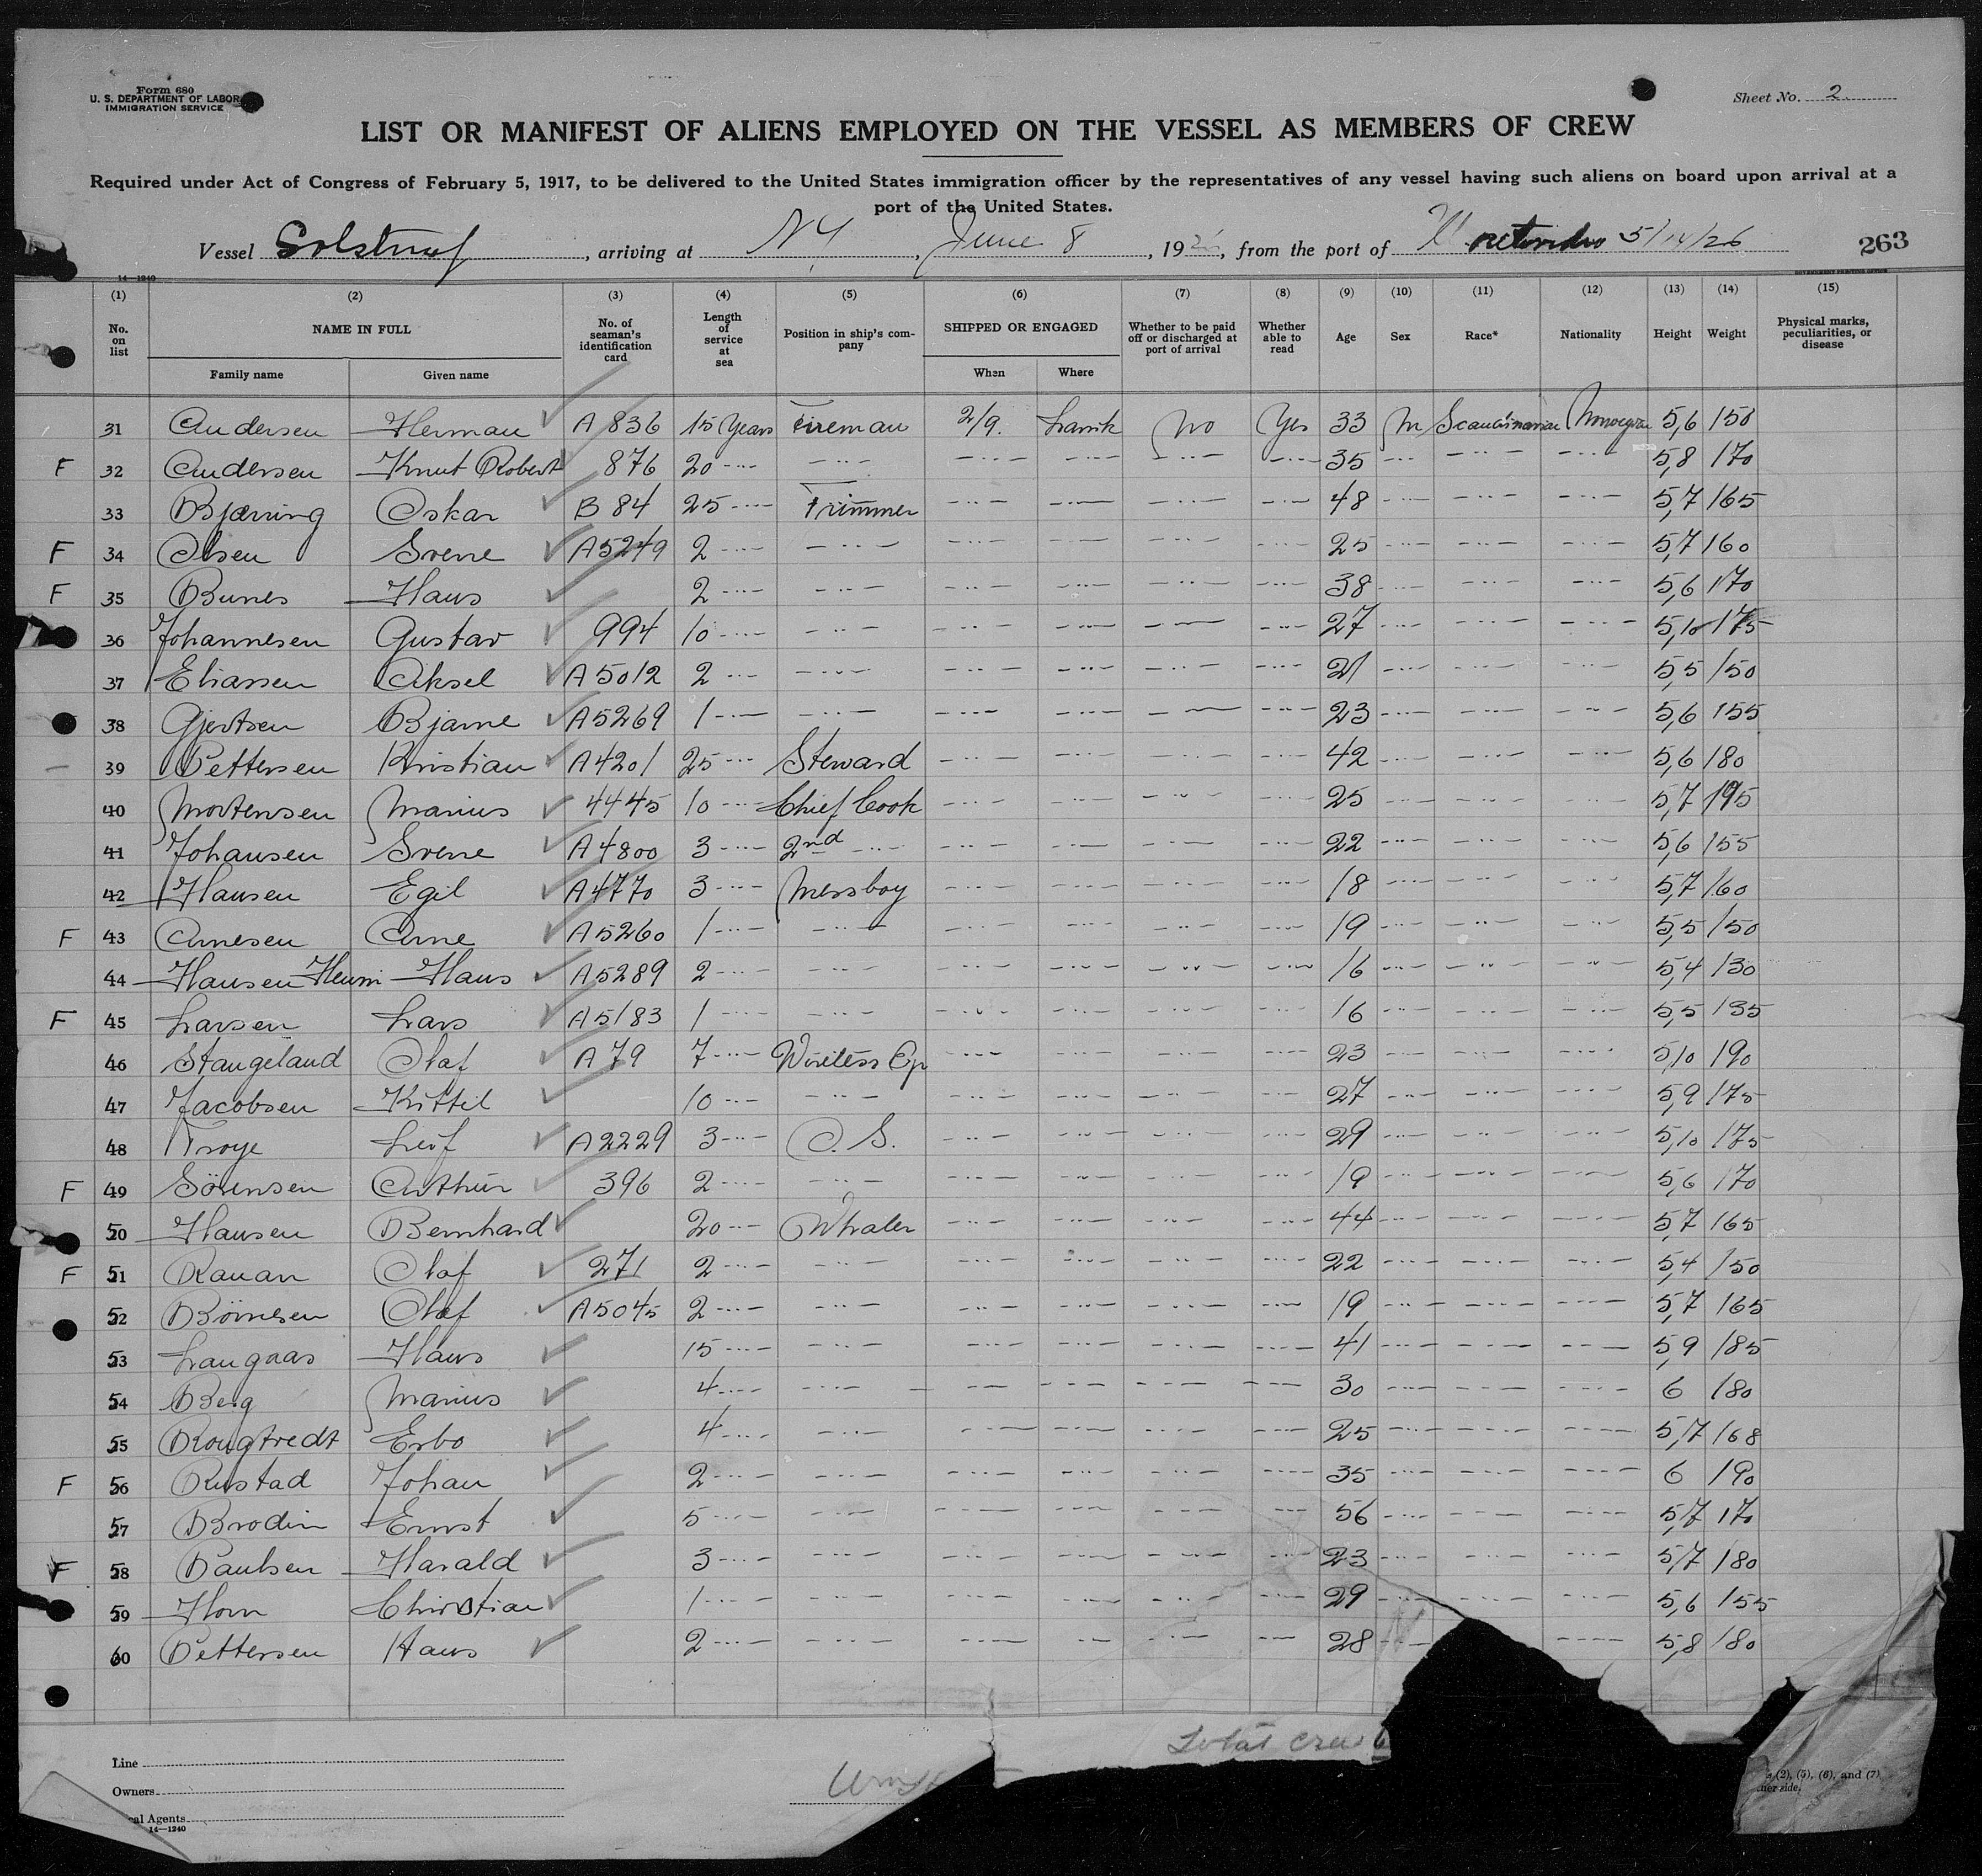 Form 680
U. S. DEPARTMENT OF LABOR
IMMIGRATION SERVICE
Sheet No. 2
LIST OR MANIFEST OF ALIENS EMPLOYED ON THE VESSEL AS MEMBERS OF CREW
Required under Act of Congress of February 5, 1917, to be delivered to the United States immigration officer by the representatives of any vessel having such aliens on board upon arrival at a
port of the United States.
Vessel Solstruf, arriving at NY, June 8, 1926, from the port of Montevideo 5/14/26
263
14—1240
GOVERNMENT PRINTING OFFICE
(1) (2) (3) (4) (5) (6) (7) (8) (9) (10) (11) (12) (13) (14) (15)
No. on list NAME IN FULL No. of seaman's identification card Length of service at sea Position in ship's company SHIPPED OR ENGAGED Whether to be paid off or discharged at port of arrival Whether able to read Age Sex Race* Nationality Height Weight Physical marks, peculiarities, or disease
Family name Given name When Where
31 Andersen Herman A 836 15 Years Fireman 2/9. Larvik No Yes 33 M Scandinavian Norwegian 5,6 150
F 32 Andersen Knut Robert 876 20 35 5,8 170
33 Bjørning Oskar B 84 25 Trimmer 48 5,7 165
F 34 Olsen Sverre A5249 2 25 5,7 160
F 35 Bunes Hans 2 38 5,6 170
36 Johannesen Gustav 994 10 27 5,10 175
37 Eliassen Aksel A5012 2 21 5,5 150
38 Gjertsen Bjarne A5269 1 23 5,6 155
39 Pettersen Kristian A4201 25 Steward 42 5,6 180
40 Mortensen Marius 4445 10 Chief Cook 25 5,7 195
41 Johansen Sverre A4800 3 2nd 22 5,6 155
42 Hansen Egil A4770 3 Messboy 18 5,7 160
F 43 Arnesen Arne A5260 1 19 5,5 150
44 Hansen Henri Hans A5289 2 16 5,4 130
F 45 Larsen Lars A5183 1 16 5,5 135
46 Stangeland Olaf A 79 7 Wireless Op 23 5,10 190
47 Jacobsen Kittil 10 27 5,9 175
48 Troye Leif A2229 3 O. S. 29 5,10 175
F 49 Sörensen Arthur 396 2 19 5,6 170
50 Hansen Bernhard 20 Whaler 44 5,7 165
F 51 Olaf 271 2 22 5,4 150
52 Börnesen Olaf A5045 2 19 5,7 165
53 Langaas Hans 15 41 5,9 185
54 Berg Marius 4 30 6 180
55 4 25 5,7 168
F 56 Rustad Johan 2 35 6 190
57 Brodin Ernst 5 56 5,7 170
F 58 Paulsen Harald 3 23 5,7 180
59 Horn Christian 1 29 5,6 155
60 Pettersen Hans 2 28 5,8 180
Total crew
Line
Owners
cal Agents
14—1240
(2), (5), (6), and (7)
her side.